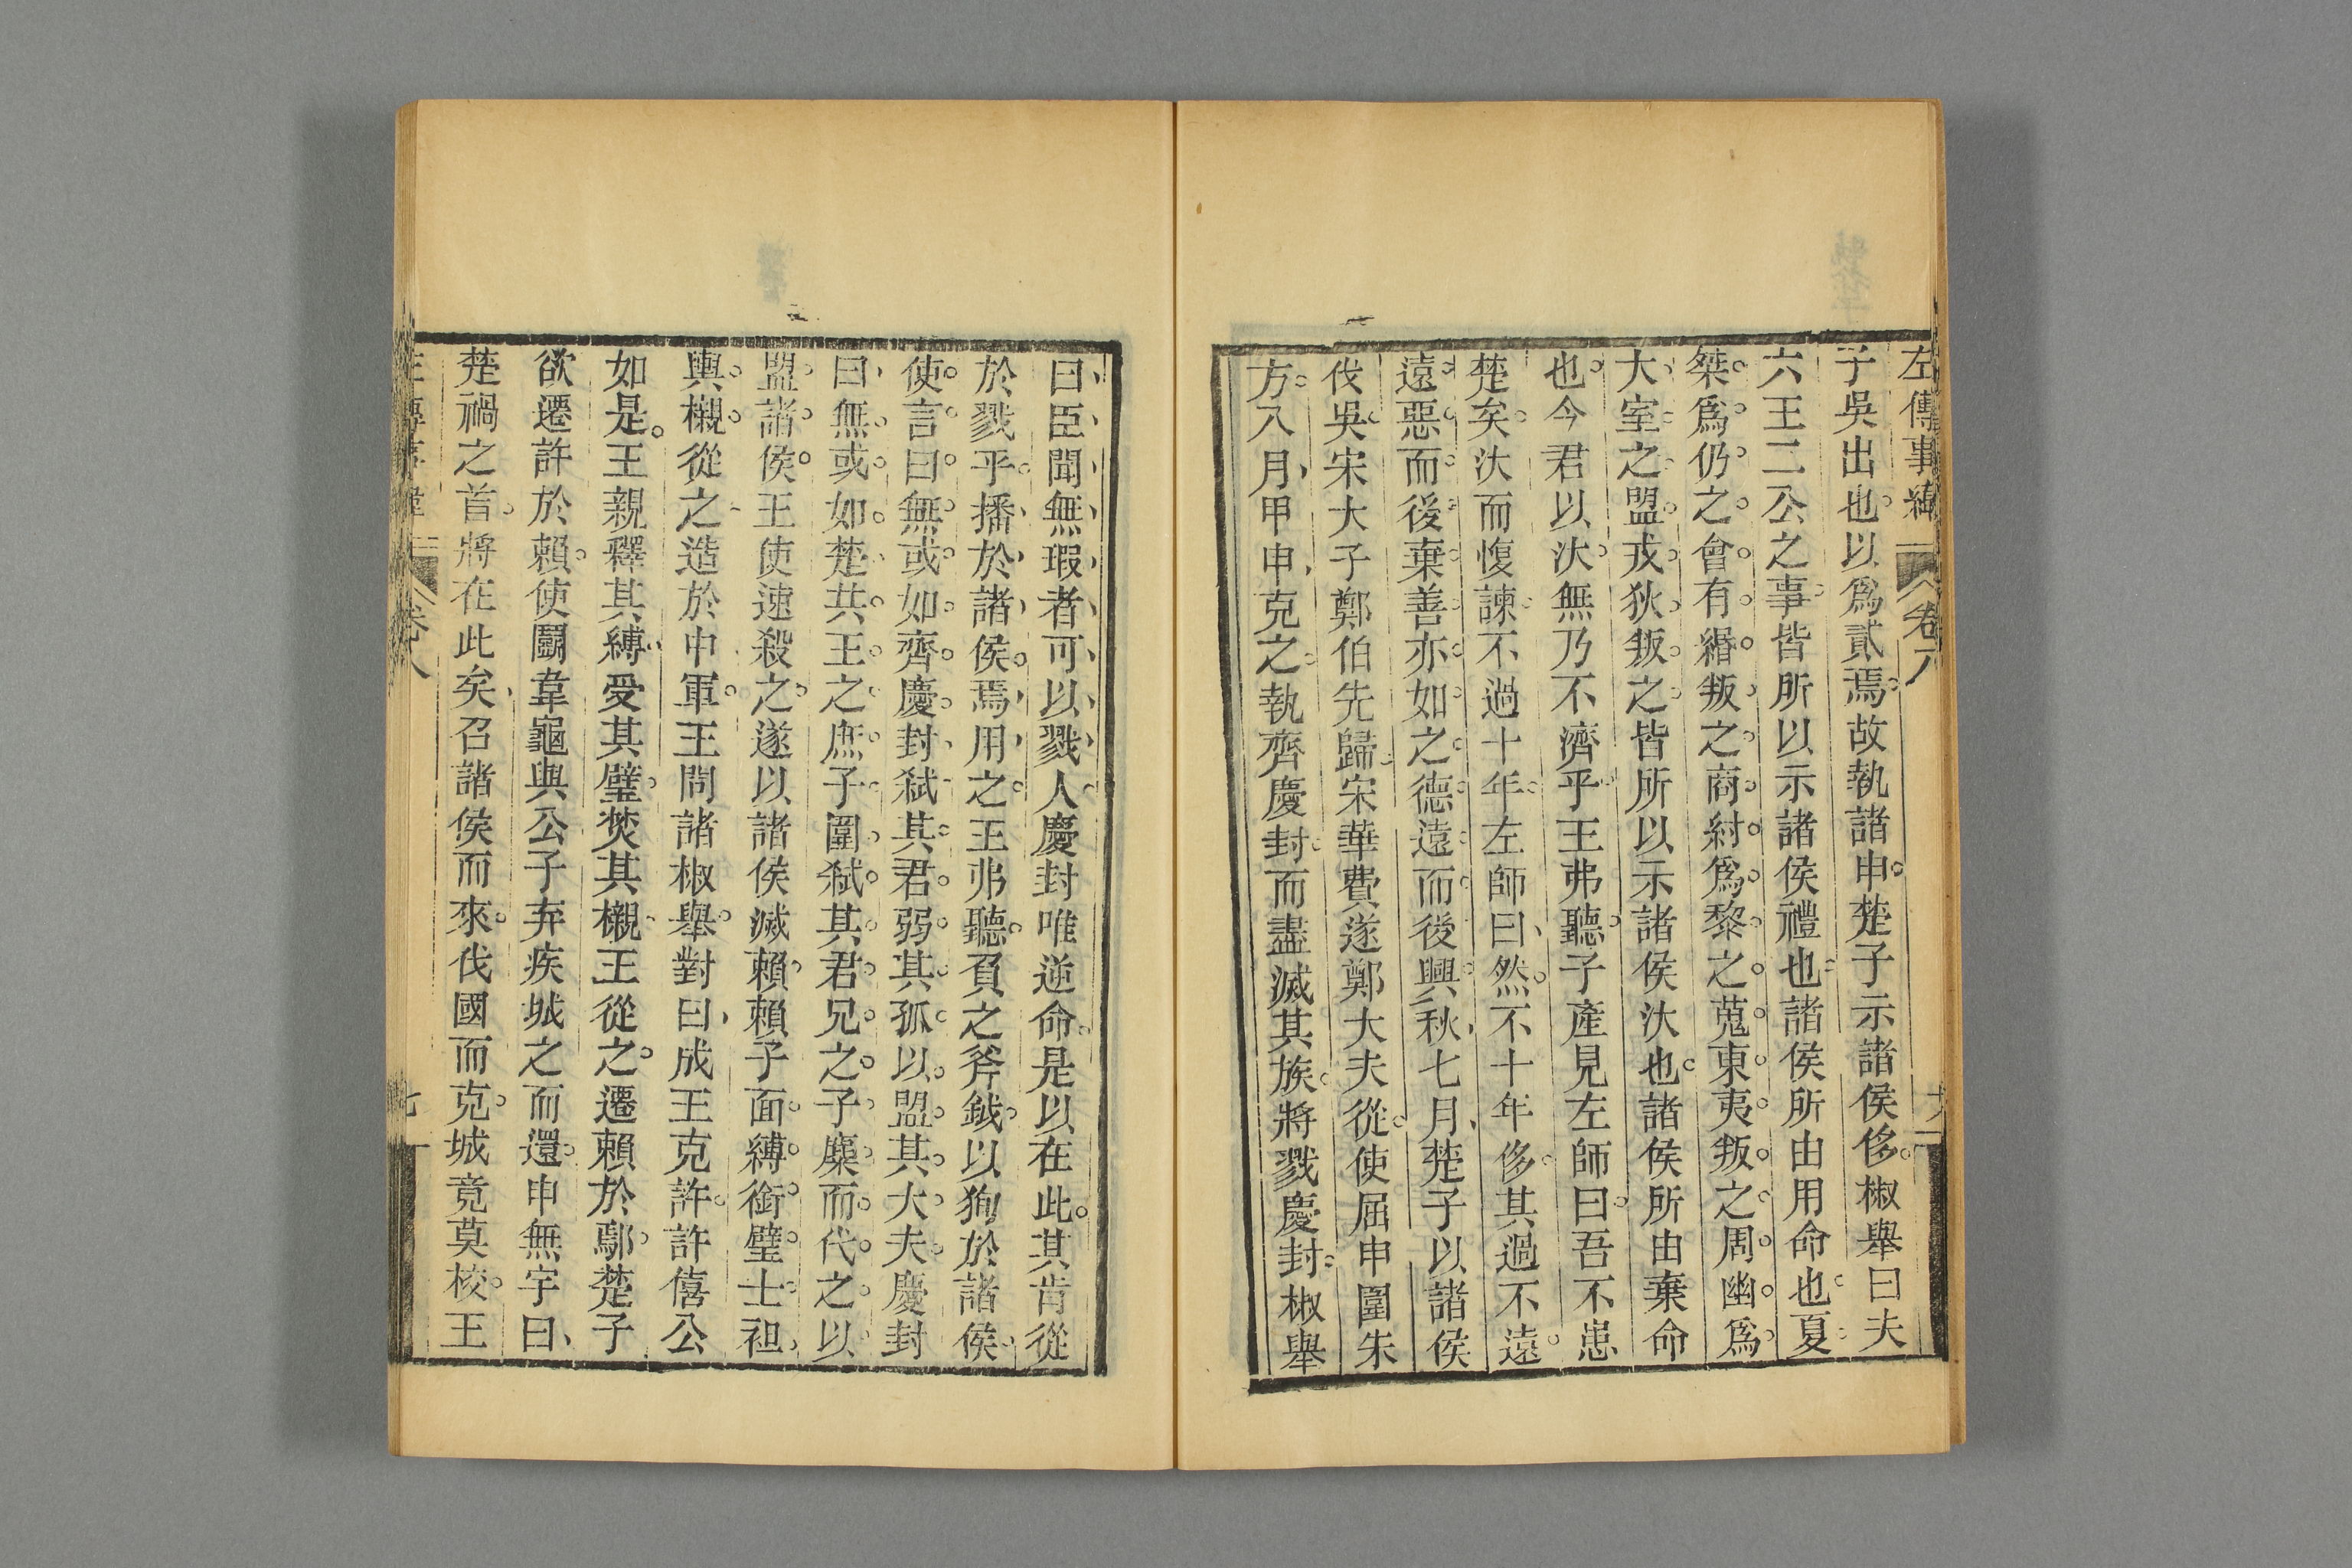 左傳事緯 卷八
子吳出也以爲貳焉故執諸申楚子示諸侯侈椒舉曰夫
六王二公之事皆所以示諸侯禮也諸侯所由用命也夏
桀爲仍之會有緡叛之商紂爲黎之蒐東夷叛之周幽爲
大室之盟戎狄叛之皆所以示諸侯汰也諸侯所由棄命
也今君以汰無乃不濟乎王弗聽子產見左師曰吾不患
楚矣汰而愎諫不過十年左師曰然不十年侈其過不遠
遠惡而後棄善亦如之德遠而後興秋七月楚子以諸侯
伐吳宋大子鄭伯先歸宋華費遂鄭大夫從使屈申圍朱
方八月甲申克之執齊慶封而盡滅其族將戮慶封椒舉
曰臣聞無瑕者可以戮人慶封唯逆命是以在此其肯從
於戮乎播於諸侯焉用之王弗聽負之斧鉞以狥於諸侯
使言曰無或如齊慶封弒其君弱其孤以盟其大夫慶封
曰無或如楚共王之庶子圍弒其君兄之子麇而代之以
盟諸侯王使速殺之遂以諸侯滅賴賴子面縛銜璧士袒
輿櫬從之造於中軍王問諸椒舉對曰成王克許許僖公
如是王親釋其縛受其璧焚其櫬王從之遷賴於鄢楚子
欲遷許於賴使鬭韋龜與公子弃疾城之而還申無宇曰
楚禍之首將在此矣召諸侯而來伐國而克城竟莫校王
卷八